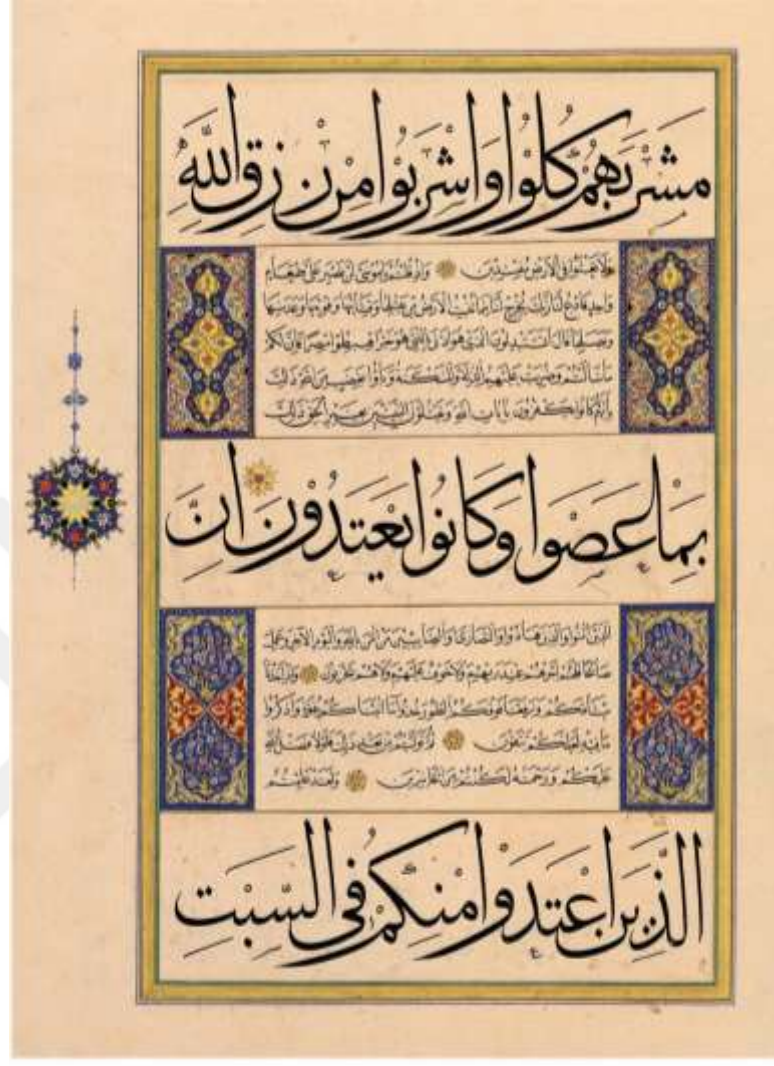 مَشْرَبَهُمْ كُلُوْا وَاشْرَبُوْا مِنْ رِزْقِ اللّٰهِ
وَلَا تَعْثَوْا فِي الْأَرْضِ مُفْسِدِينَ وَإِذْ قُلْتُمْ يَا مُوسَى لَنْ نَصْبِرَ عَلَى طَعَامٍ
وَاحِدٍ فَادْعُ لَنَا رَبَّكَ يُخْرِجْ لَنَا مِمَّا تُنْبِتُ الْأَرْضُ مِنْ بَقْلِهَا وَقِثَّائِهَا وَفُومِهَا وَعَدَسِهَا
وَبَصَلِهَا قَالَ أَتَسْتَبْدِلُونَ الَّذِي هُوَ أَدْنَى بِالَّذِي هُوَ خَيْرٌ اهْبِطُوا مِصْرًا فَإِنَّ لَكُمْ
مَا سَأَلْتُمْ وَضُرِبَتْ عَلَيْهِمُ الذِّلَّةُ وَالْمَسْكَنَةُ وَبَاؤُا بِغَضَبٍ مِنَ اللهِ ذَلِكَ
بِأَنَّهُمْ كَانُوا يَكْفُرُونَ بِآيَاتِ اللهِ وَيَقْتُلُونَ النَّبِيِّينَ بِغَيْرِ الْحَقِّ ذَلِكَ
بِمَا عَصَوْا وَكَانُوْا يَعْتَدُوْنَ اِنَّ
الَّذِينَ آمَنُوا وَالَّذِينَ هَادُوا وَالنَّصَارَى وَالصَّابِئِينَ مَنْ آمَنَ بِاللهِ وَالْيَوْمِ الْآخِرِ وَعَمِلَ
صَالِحًا فَلَهُمْ أَجْرُهُمْ عِنْدَ رَبِّهِمْ وَلَا خَوْفٌ عَلَيْهِمْ وَلَا هُمْ يَحْزَنُونَ وَإِذْ أَخَذْنَا
مِيثَاقَكُمْ وَرَفَعْنَا فَوْقَكُمُ الطُّورَ خُذُوا مَا آتَيْنَاكُمْ بِقُوَّةٍ وَاذْكُرُوا
مَا فِيهِ لَعَلَّكُمْ تَتَّقُونَ ثُمَّ تَوَلَّيْتُمْ مِنْ بَعْدِ ذَلِكَ فَلَوْلَا فَضْلُ اللهِ
عَلَيْكُمْ وَرَحْمَتُهُ لَكُنْتُمْ مِنَ الْخَاسِرِينَ وَلَقَدْ عَلِمْتُمُ
الَّذِيْنَ اعْتَدَوْا مِنْكُمْ فِي السَّبْتِ